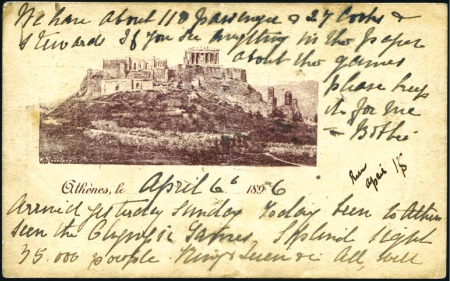 We have about 118 passengers & 27 Cooks &
stewards If you see anything in the paper
about the games
please keep
it for me
Athènes, le April 6th 1896
April
Arrived yesterday Sunday Today been to Athens
seen the Olympic Games. Splend Sight
35.000 people. King & Queen &c All well